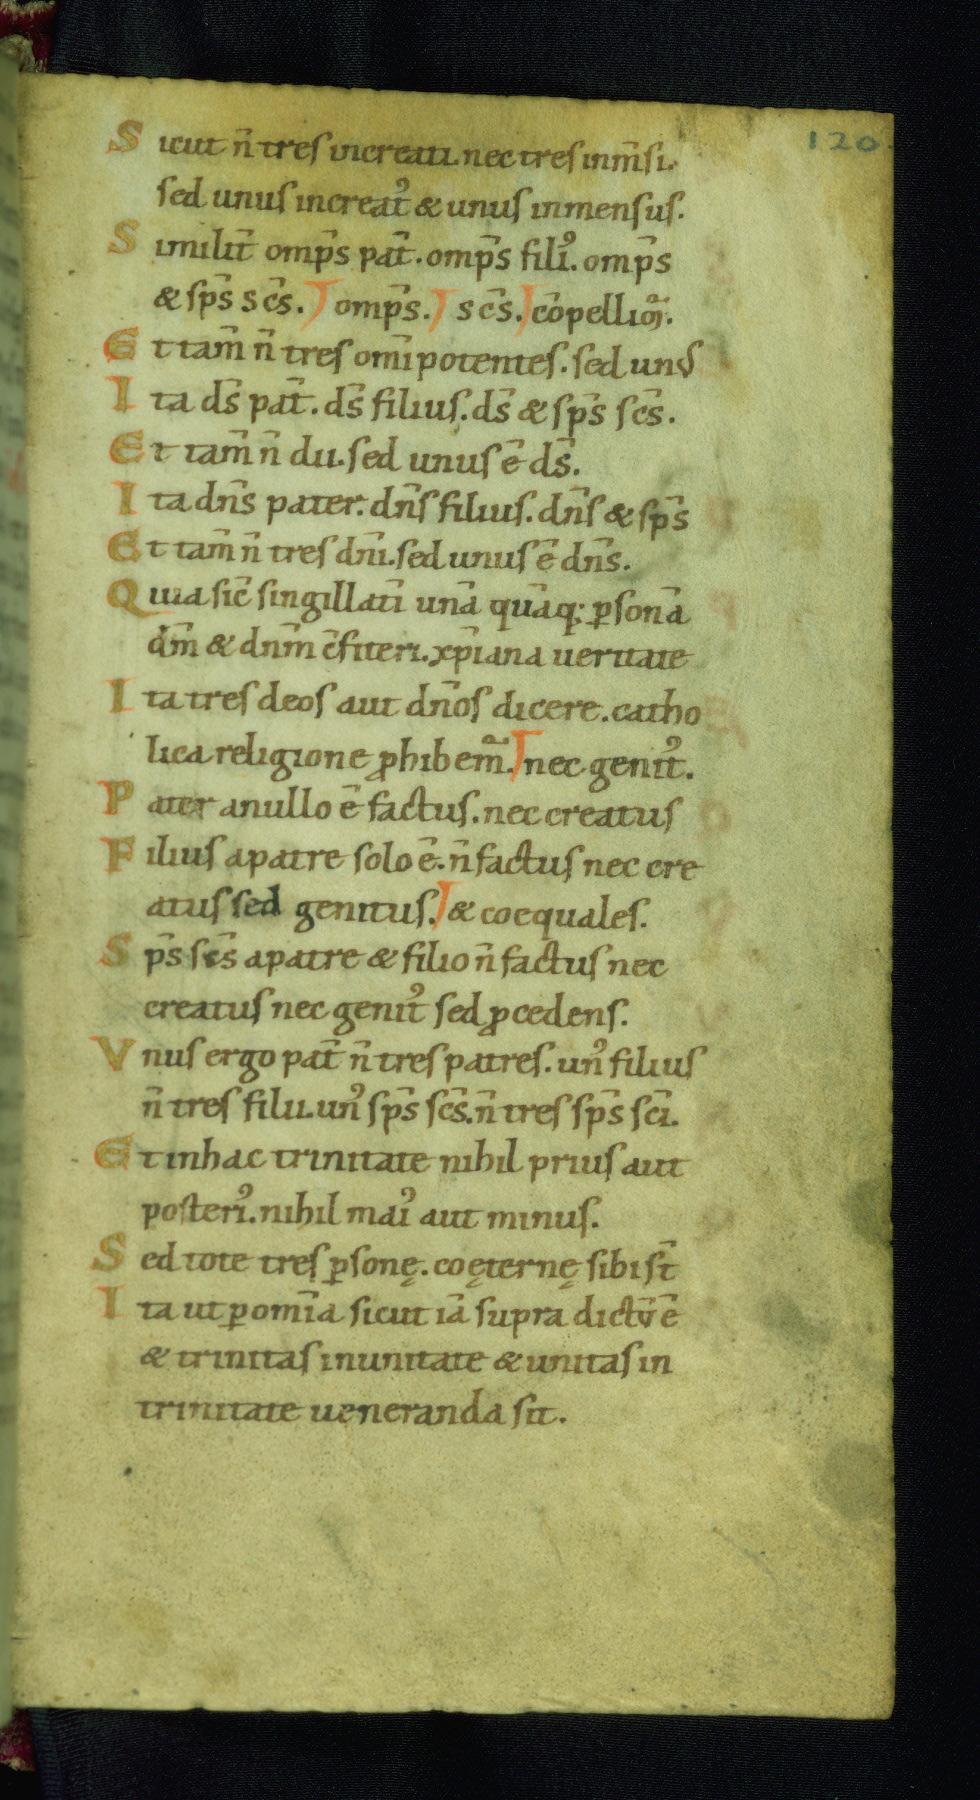 120.
Sicut n̄ tres increati. nec tres inm̄si.
sed unus increat᷒ & unus inmensus.
Similit̄ omp̄s pat̄. omp̄s fili᷒. omp̄s
& sp̄s sc̄s. omp̄s. sc̄s. c̄opellim᷒.
Et tam̄ n̄ tres om̄ipotentes. sed unus
Ita ds̄ pat̄. ds̄ filius. ds̄ & sp̄s sc̄s.
Et tam̄ n̄ dii. sed unus ē ds̄.
Ita dn̄s pater. dn̄s filius. dn̄s & sp̄s
Et tam̄ n̄ tres dn̄i. sed unus ē dn̄s.
Quia sic̄ singillati̅ unā quāq; ꝑsonā
dm̄ & dnm̄ c̄fiteri. xp̄iana ueritate
Ita tres deos aut dn̄os dicere. catho
lica religione ꝓhibem᷒. nec genit᷒.
Pater a nullo ē factus. nec creatus
Filius a patre solo ē. n̄ factus nec cre
atus sed genitus. & coequales.
Sp̄s sc̄s a patre & filio n̄ factus nec
creatus nec genit᷒ sed ꝓcedens.
Vnus ergo pat̄ n̄ tres patres. un᷒ filius
n̄ tres filii. un᷒ sp̄s sc̄s. n̄ tres sp̄s sc̄i.
Et in hac trinitate nihil prius aut
posteri᷒. nihil mai᷒ aut minus.
Sed tote tres ꝑsonę. coęternę sibi st̄
Ita ut ꝑ om̄ia sicut iā supra dictū ē
& trinitas in unitate & unitas in
trinitate ueneranda sit.